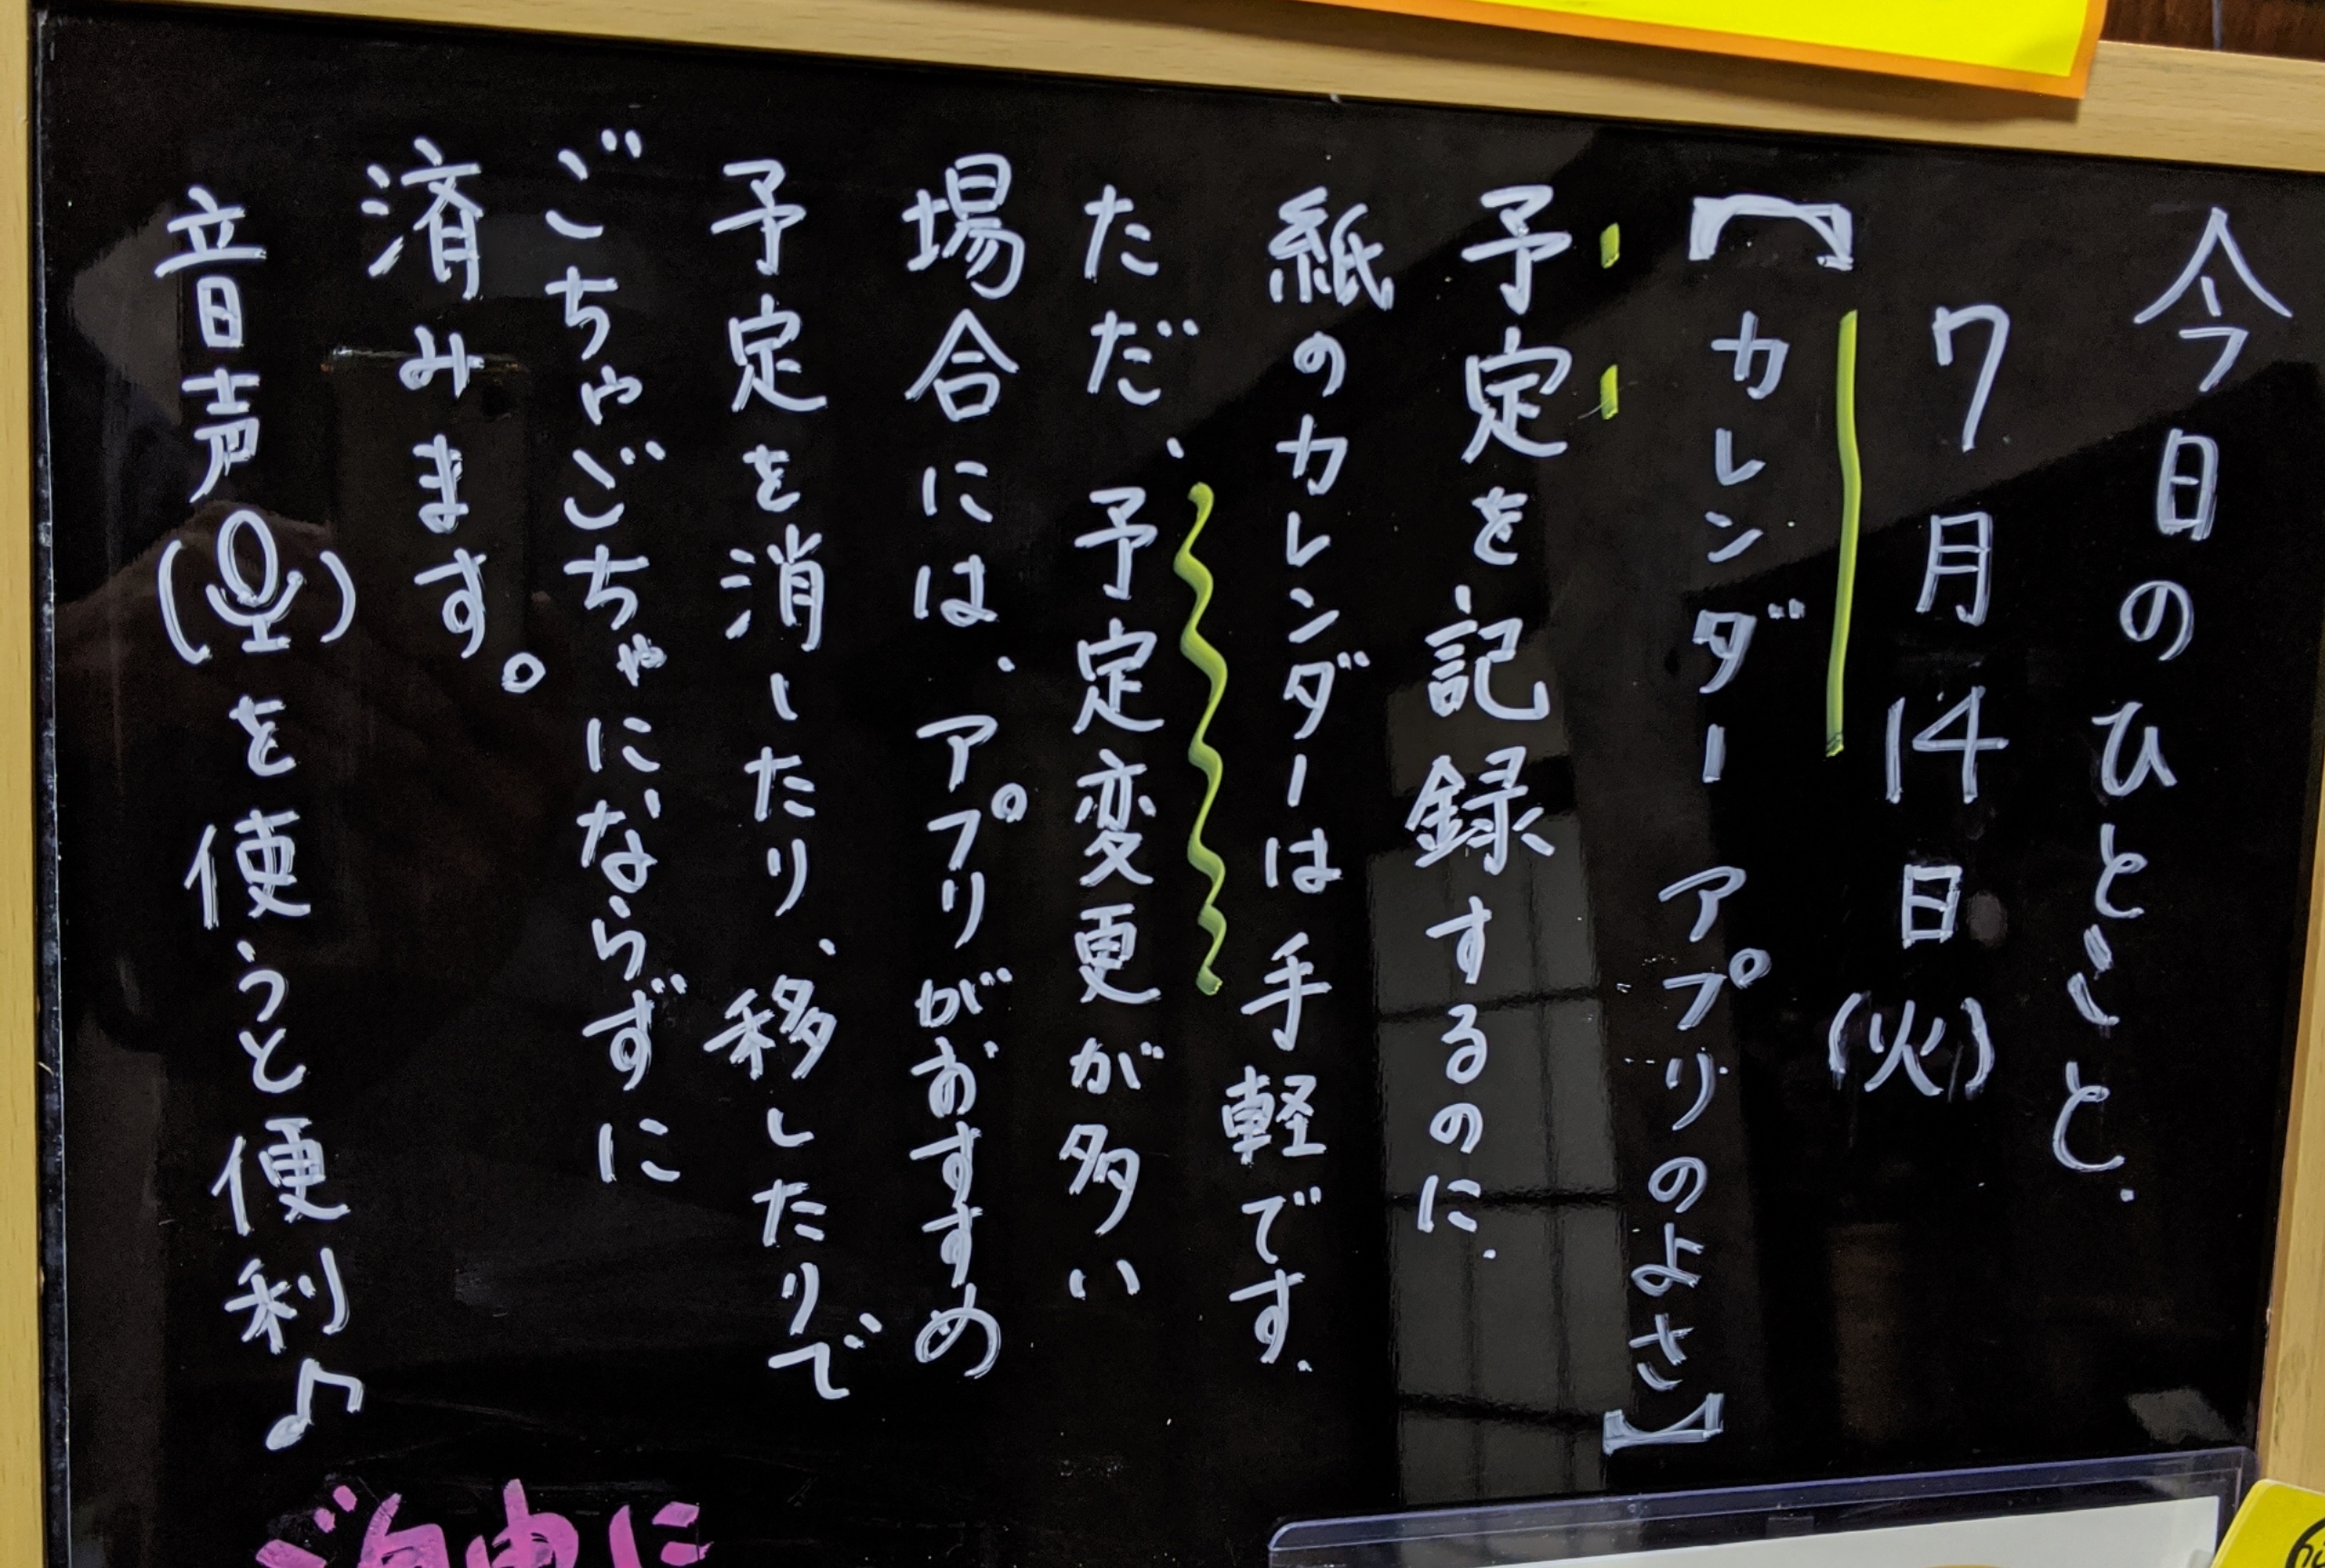 今日のひとこと.
7月14日(火)
【カレンダーアプリのよさ】
予定を記録するのに.
紙のカレンダーは手軽です.
ただ、予定変更が多い
場合には、アプリがおすすめ
予定を消したり、移したりで
ごちゃごちゃにならずに
済みます。
音声()を使うと便利♪
ご自由に